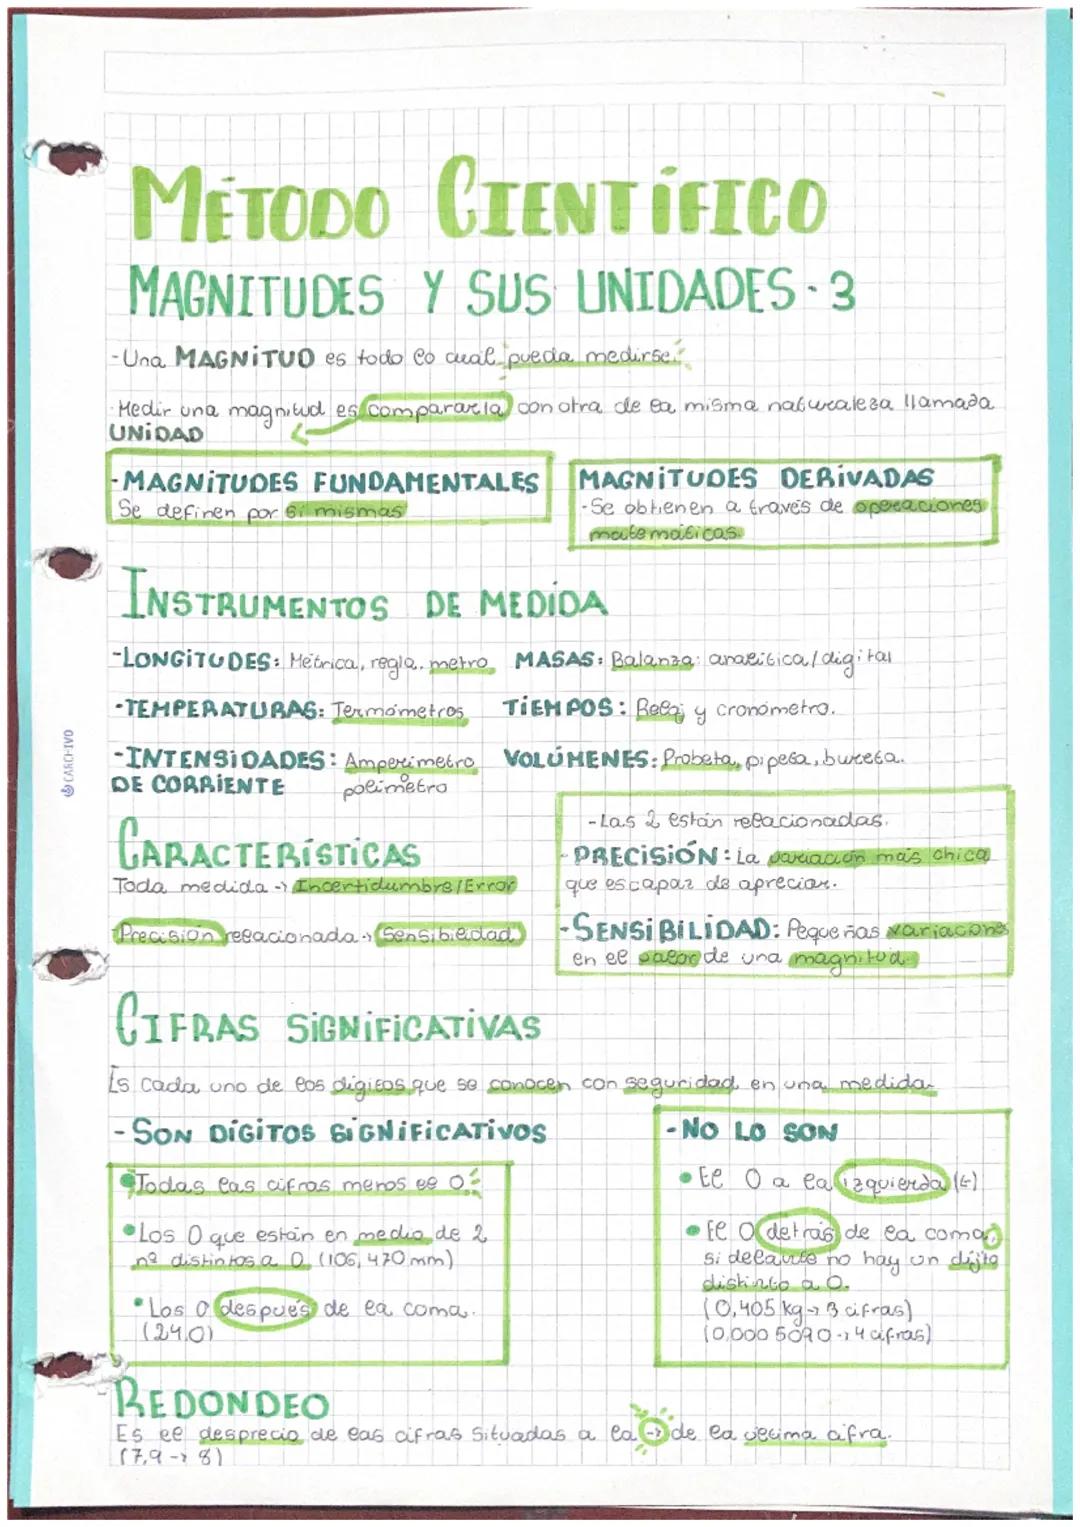 MÉTODO CIENTÍFICO
MAGNITUDES Y SUS UNIDADES · 3
-Una MAGNITUD es todo lo cual pueda medirse.
·Medir una magnitud es compararla con otra de la misma naturaleza llamada
UNIDAD
-MAGNITUDES FUNDAMENTALES
Se definen por si mismas
MAGNITUDES DERIVADAS
-Se obtienen a través de operaciones
matemáticas.
INSTRUMENTOS DE MEDIDA
-LONGITUDES: Métrica, regla, metro
MASAS: Balanza: analítica/digital
-TEMPERATURAS: Termómetros
TIEMPOS: Reloj y cronómetro.
-INTENSIDADES: Amperimetro
DE CORRIENTE o polimetro
VOLÚMENES: Probeta, pipeta, bureta.
CARCHIVO
CARACTERÍSTICAS
Toda medida → Incertidumbre/Error
Precisión relacionada → Sensibilidad
-Las 2 están relacionadas.
-PRECISIÓN: La variación más chica
que es capaz de apreciar.
-SENSIBILIDAD: Pequeñas variaciones
en el valor de una magnitud.
CIFRAS SIGNIFICATIVAS
Es cada uno de los dígitos que se conocen con seguridad en una medida
-SON DÍGITOS SIGNIFICATIVOS
•Todas las cifras menos el 0
•Los 0 que están en medio de 2
nº distintos a 0 (106,470 mm)
•Los 0 después de la coma.
(24,0)
-NO LO SON
•El 0 a la izquierda (←)
•El 0 detrás de la coma,
si delante no hay un dígito
distinto a 0.
(0,405 kg → 3 cifras)
(0,000 5090 → 4 cifras)
REDONDEO
Es el desprecio de las cifras situadas a la → de la última cifra.
(7,9 → 8)